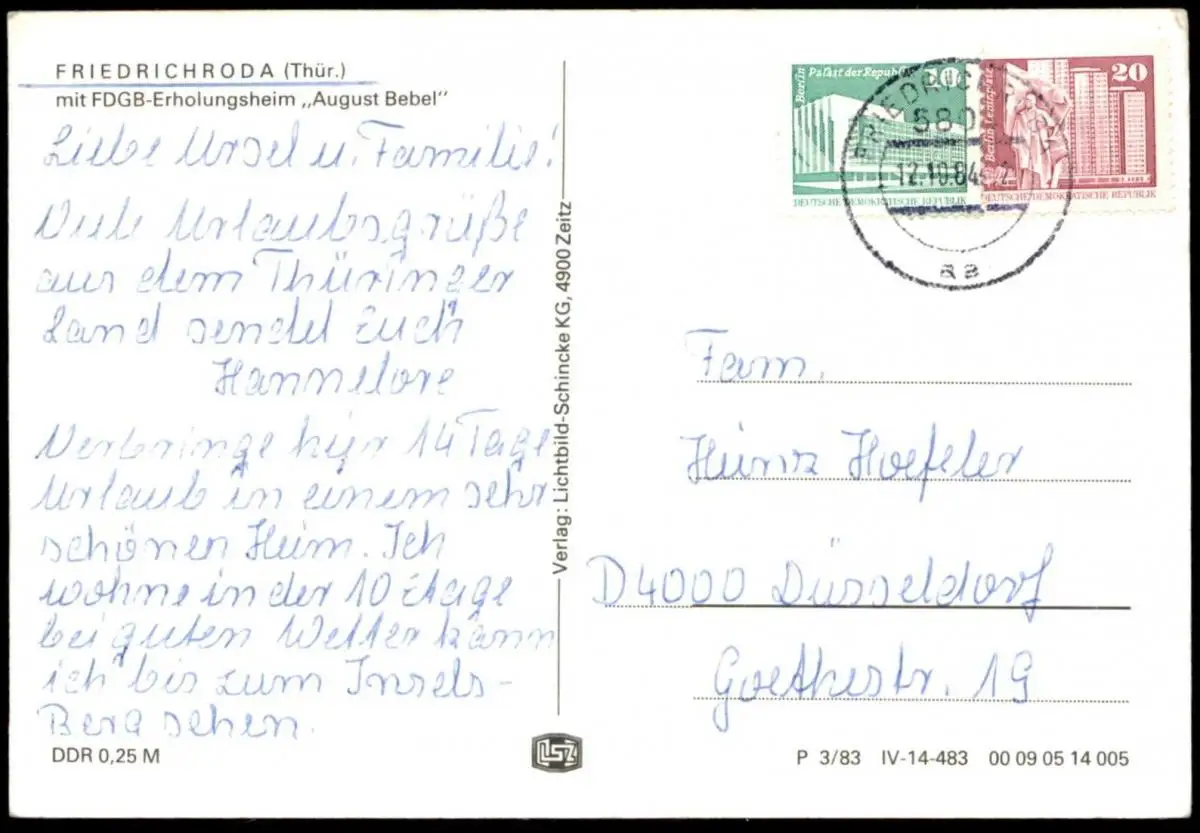 FRIEDRICHRODA (Thür.)
mit FDGB-Erholungsheim „August Bebel"
Liebe Ursel u. Familie!
Viele Urlaubsgrüße
aus dem Thüringer
Land sendet Euch
Hannelore
Verbringe hier 14 Tage
Urlaub in einem sehr
schönen Heim. Ich
wohne in der 10 Etage
bei guten Wetter kann
ich bis zum Insels-
Berg sehen.
DDR 0,25 M
Verlag: Lichtbild-Schincke KG, 4900 Zeitz
LSZ
Berlin Palast der Republik 10
DEUTSCHE DEMOKRATISCHE REPUBLIK
Berlin 20
DEUTSCHE DEMOKRATISCHE REPUBLIK
FRIEDRICHRODA
580
12.10.84
aa
Fam.
Heinz Hoefeler
D4000 Düsseldorf
Goethestr. 19
P 3/83 IV-14-483 00 09 05 14 005